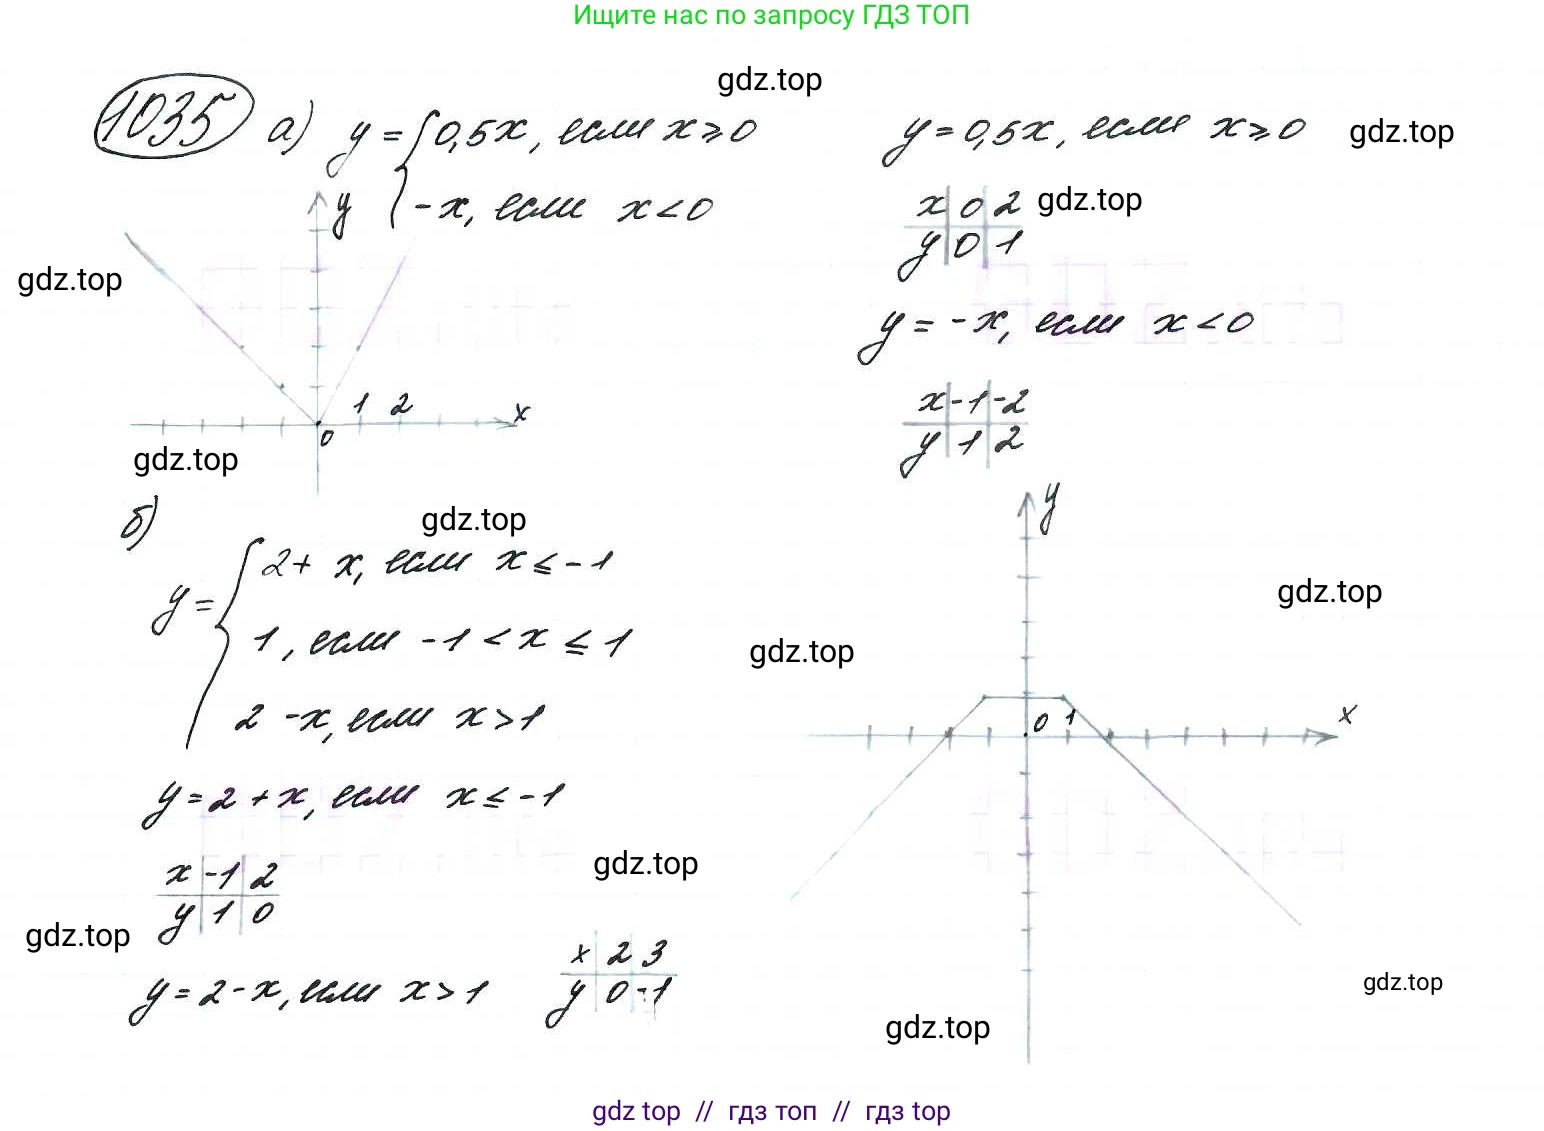 Ищите нас по запросу ГДЗ ТОП
gdz.top
1035 а) y = { 0,5x, если x ⩾ 0
-x, если x < 0
y = 0,5x, если x ⩾ 0
gdz.top
x 0 2
y 0 1
gdz.top
y
gdz.top
y = -x, если x < 0
x -1 -2
y 1 2
1 2 x
0
gdz.top
б)
gdz.top
y = { 2 + x, если x ≤ -1
1, если -1 < x ≤ 1
2 - x, если x > 1
y
gdz.top
gdz.top
0 1 x
y = 2 + x, если x ≤ -1
x -1 2
y 1 0
gdz.top
gdz.top
y = 2 - x, если x > 1
x 2 3
y 0 -1
gdz.top
gdz.top
gdz top // гдз топ // гдз top